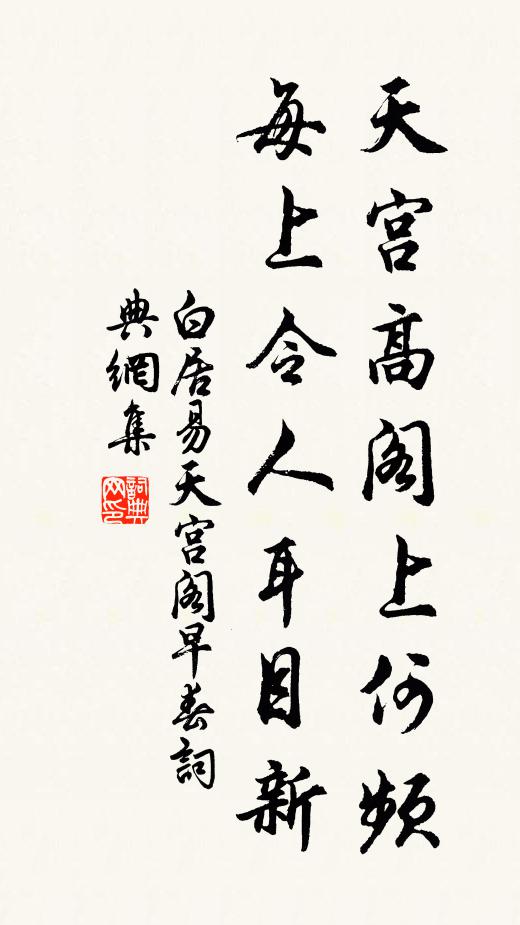 天宫高阁上何频
每上令人耳目新
白居易天宫阁早春詞
典網集
詞典网印